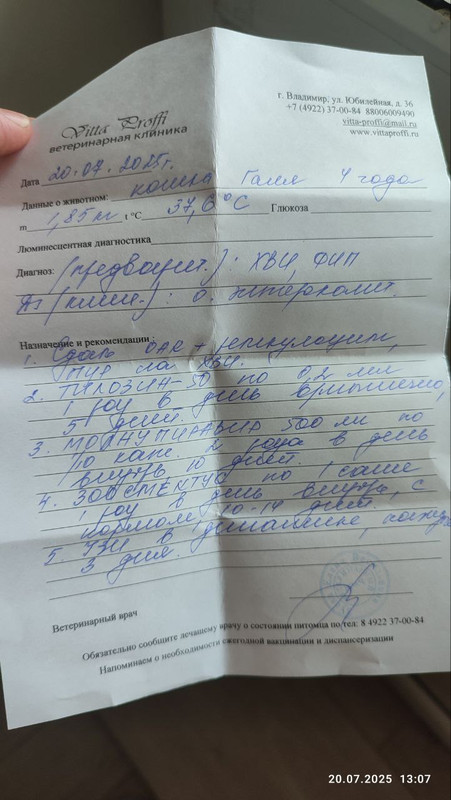 Vitta Proffi
ветеринарная клиника
г. Владимир, ул. Юбилейная, д. 36
+7 (4922) 37-00-84 88006009490
vitta-proffi@mail.ru
www.vittaproffi.ru
Дата 20.07.2025г.
Данные о животном: кошка Галя 4 года
m 1,85 кг t °C 37,6 °C Глюкоза
Люминесцентная диагностика
Диагноз: (предварит.): ХВИ, ФИП
Дз (клин.): о. энтероколит.
Назначение и рекомендации
1. Сдать ОАК + ретикулоциты,
ПЦР на ХВИ.
2. ТИЛОЗИН-50 по 0,2 мл
1 раз в день внутримышечно,
5 дней.
3. МОЛНУПИРАВИР 500 мл по
10 кап. 2 раза в день
внутрь 10 дней.
4. ЗООСМЕКТУС по 1 саше
1 раз в день внутрь, с
кормом, 10-14 дней.
5. УЗИ в динамике, каждые
3 дня.
Ветеринарный врач
Обязательно сообщите лечащему врачу о состоянии питомца по тел: 8 4922 37-00-84
Напоминаем о необходимости ежегодной вакцинации и диспансеризации
20.07.2025 13:07